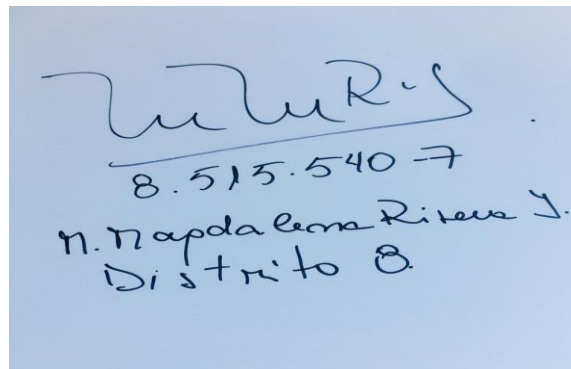 8.515.540-7
M. Magdalena Rivera I.
Distrito 8.